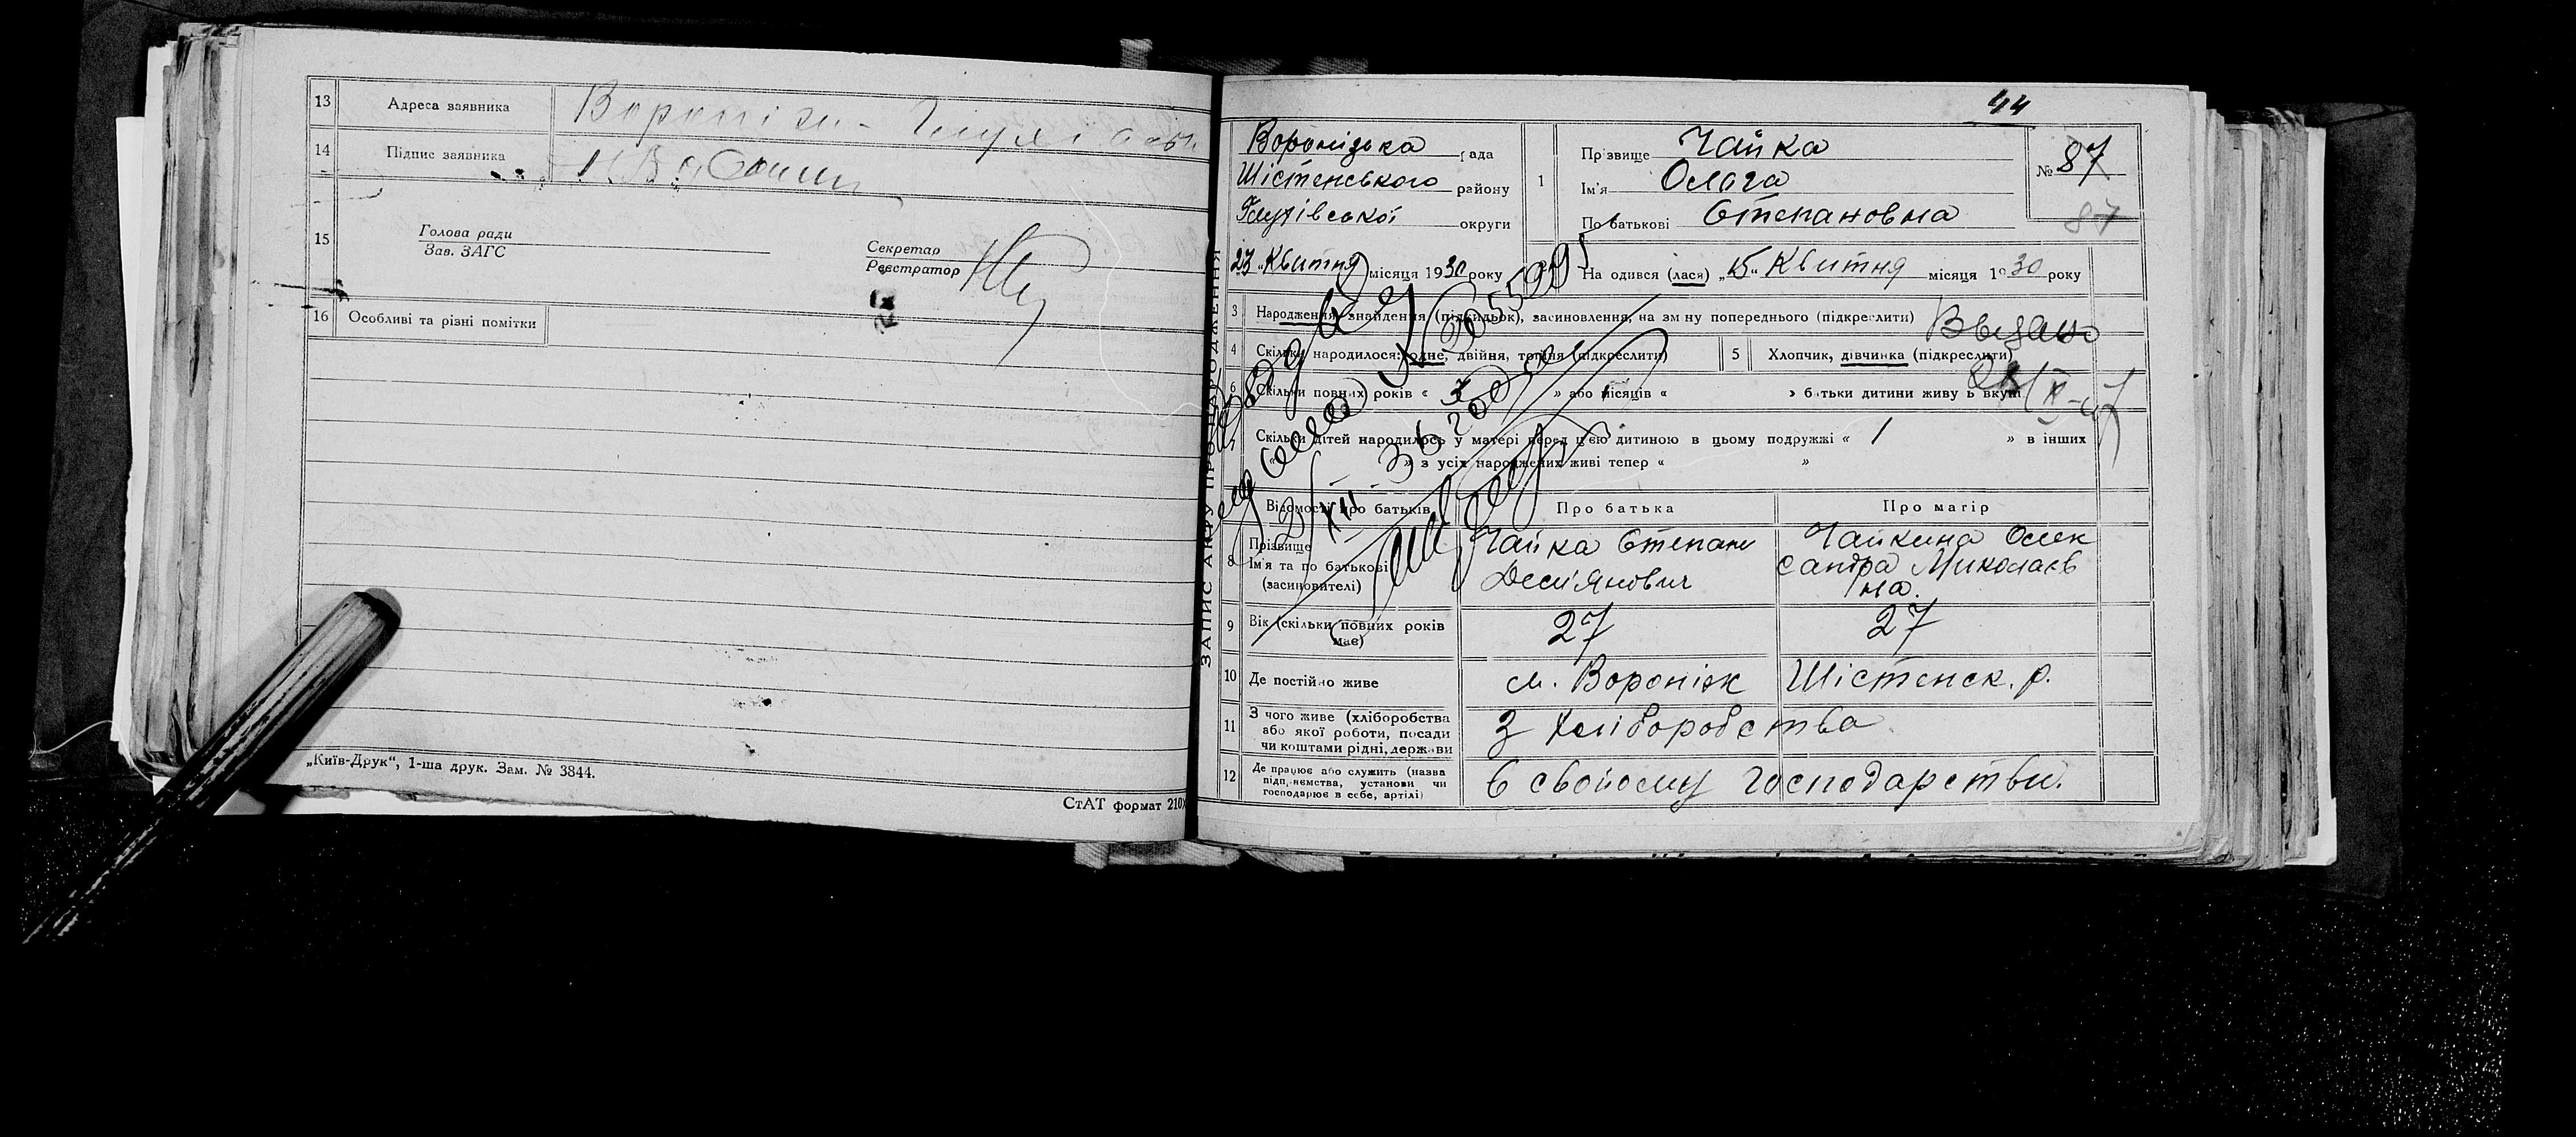 13 Адреса заявника
14 Підпис заявника
15 Голова ради
Зав. ЗАГС
Секретар
Реєстратор
16 Особливі та різні помітки
„Київ-Друк“, 1-ша друк. Зам. № 3844.
СтАТ формат 210
44
ЗАПИС АКТУ ПРО НАРОДЖЕННЯ
Воронізька рада
Шістенського району
Глухівської округи
23 „Квитня місяця 1930 року
1 Прізвище Чайка
Ім'я Ольга
По батькові Степановна
№ 87
87
Народився (лася) „15“ Квитня місяця 1930 року
3 Народження, знайдення (підкидьок), засиновлення, на зміну попереднього (підкреслити)
4 Скільки народилося: одне, двійня, тройня (підкреслити) 5 Хлопчик, дівчинка (підкреслити)
6 Скільки повних років « 3 » або місяців « » батьки дитини живуть вкупі
7 Скільки дітей народилось у матері перед цією дитиною в цьому подружжі « 1 » в інших
« » з усіх народжених живі тепер « »
Відомості про батьків Про батька Про матір
8 Прізвище
Ім'я та по батькові
(засиновителі)
Чайка Степан
Дем'янович
Чайкина Олек
сантра Миколаєв
на.
9 Вік (скільки повних років має) 27 27
10 Де постійно живе м. Вороніж Шістенск. р.
11 З чого живе (хліборобства
або якої роботи, посади
чи коштами рідні, держави
З хліборобства
12 Де працює або служить (назва
підприємства, установи чи
господарює в себе, артілі)
в свойому господарстви.